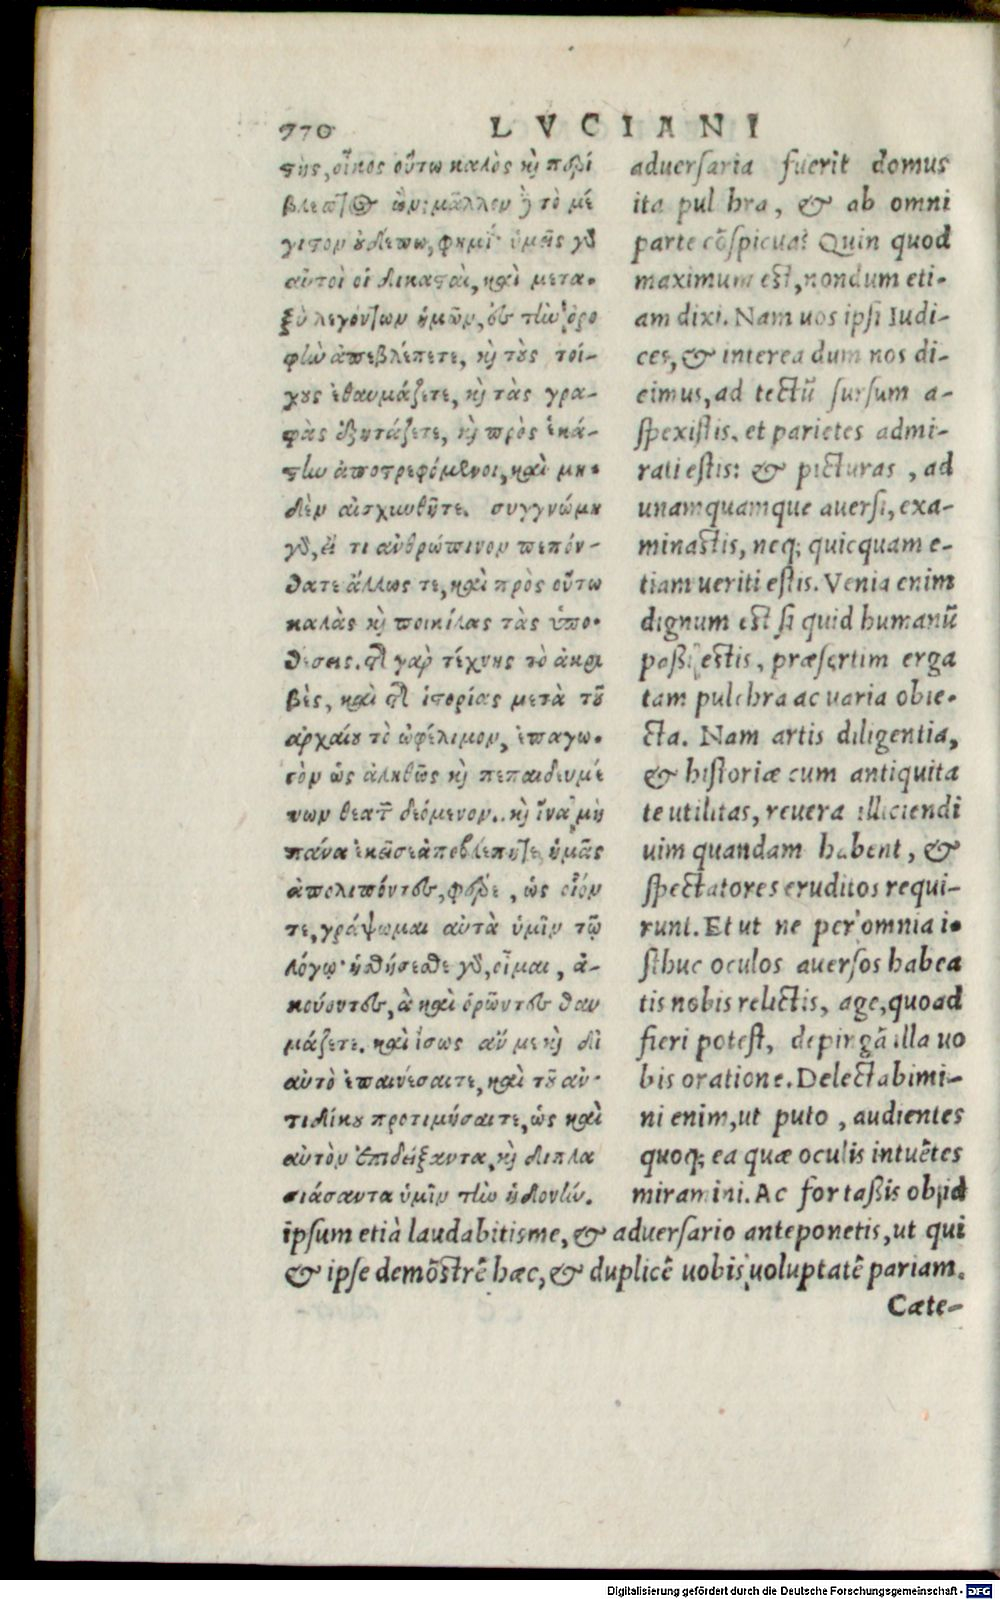 770 LVCIANI
της, οἶκος οὕτω καλὸς κὶ περί
βλεπτος ὤν; μᾶλλον δὲ τὸ μέ
γιστον οὐδέπω, φημί· ὑμεῖς γὰρ
αὐτοὶ οἱ δικασταὶ, καὶ μετα-
ξὺ λεγόντων ἡμῶν, ἐς τὴν ὀρο
φὴν ἀπεβλέπετε, κὶ τοὺς τοί-
χους ἐθαυμάζετε, κὶ τὰς γρα-
φὰς ἐξητάζετε, κὶ πρὸς ἑκά-
στην ἀποστρεφόμενοι, καὶ μη-
δὲν αἰσχυνθῆτε. συγγνώμη
γὰρ, εἴ τι ἀνθρώπινον πεπόν-
θατε ἄλλως τε, καὶ πρὸς οὕτω
καλὰς κὶ ποικίλας τὰς ὑπο-
θέσεις. τῆς γὰρ τέχνης τὸ ἀκρι
βὲς, καὶ τῆς ἱστορίας μετὰ τοῦ
ἀρχαίου τὸ ὠφέλιμον, ἐπαγω-
γὸν ὡς ἀληθῶς κὶ πεπαιδευμέ
νων θεατῶν δεόμενον. κὶ ἵνα μὴ
πάντα ἐκεῖσε ἀποβλέπητε ὑμᾶς
ἀπολιπόντες, φέρε, ὡς οἷόν
τε, γράψωμαι αὐτὰ ὑμῖν τῷ
λόγῳ· ἡσθήσεσθε γὰρ, οἶμαι, ἀ-
κούοντες, ἃ καὶ ὁρῶντες θαυ
μάζετε. καὶ ἴσως ἄν με κὶ δι
αὐτὸ ἐπαινέσαιτε, καὶ τοῦ ἀν-
τιδίκου προτιμήσαιτε, ὡς καὶ
αὐτὸν ἐπιδείξαντα, κὶ διπλα
σιάσαντα ὑμῖν τὴν ἡδονήν.
aduersaria fuerit domus
ita pul hra, & ab omni
parte cōspicua? Quin quod
maximum est, nondum eti-
am dixi. Nam uos ipsi Iudi-
ces, & interea dum nos di-
cimus, ad tectū sursum a-
spexistis, et parietes admi-
rati estis: & picturas, ad
unamquamque auersi, exa-
minastis, neq; quicquam e-
tiam ueriti estis. Venia enim
dignum est si quid humanū
passi estis, præsertim erga
tam pulchra ac uaria obie-
cta. Nam artis diligentia,
& historiæ cum antiquita
te utilitas, reuera illiciendi
uim quandam habent, &
spectatores eruditos requi-
runt. Et ut ne per omnia i-
sthuc oculos auersos habea
tis nobis relictis, age, quoad
fieri potest, depingā illa uo
bis oratione. Delectabimi-
ni enim, ut puto, audientes
quoq; ea quæ oculis intuētes
miramini. Ac fortassis ob id
ipsum etiā laudabitis me, & aduersario anteponetis, ut qui
& ipse demōstrē hæc, & duplicē uobis uoluptatē pariam.
Cæte-
Digitalisierung gefördert durch die Deutsche Forschungsgemeinschaft - DFG